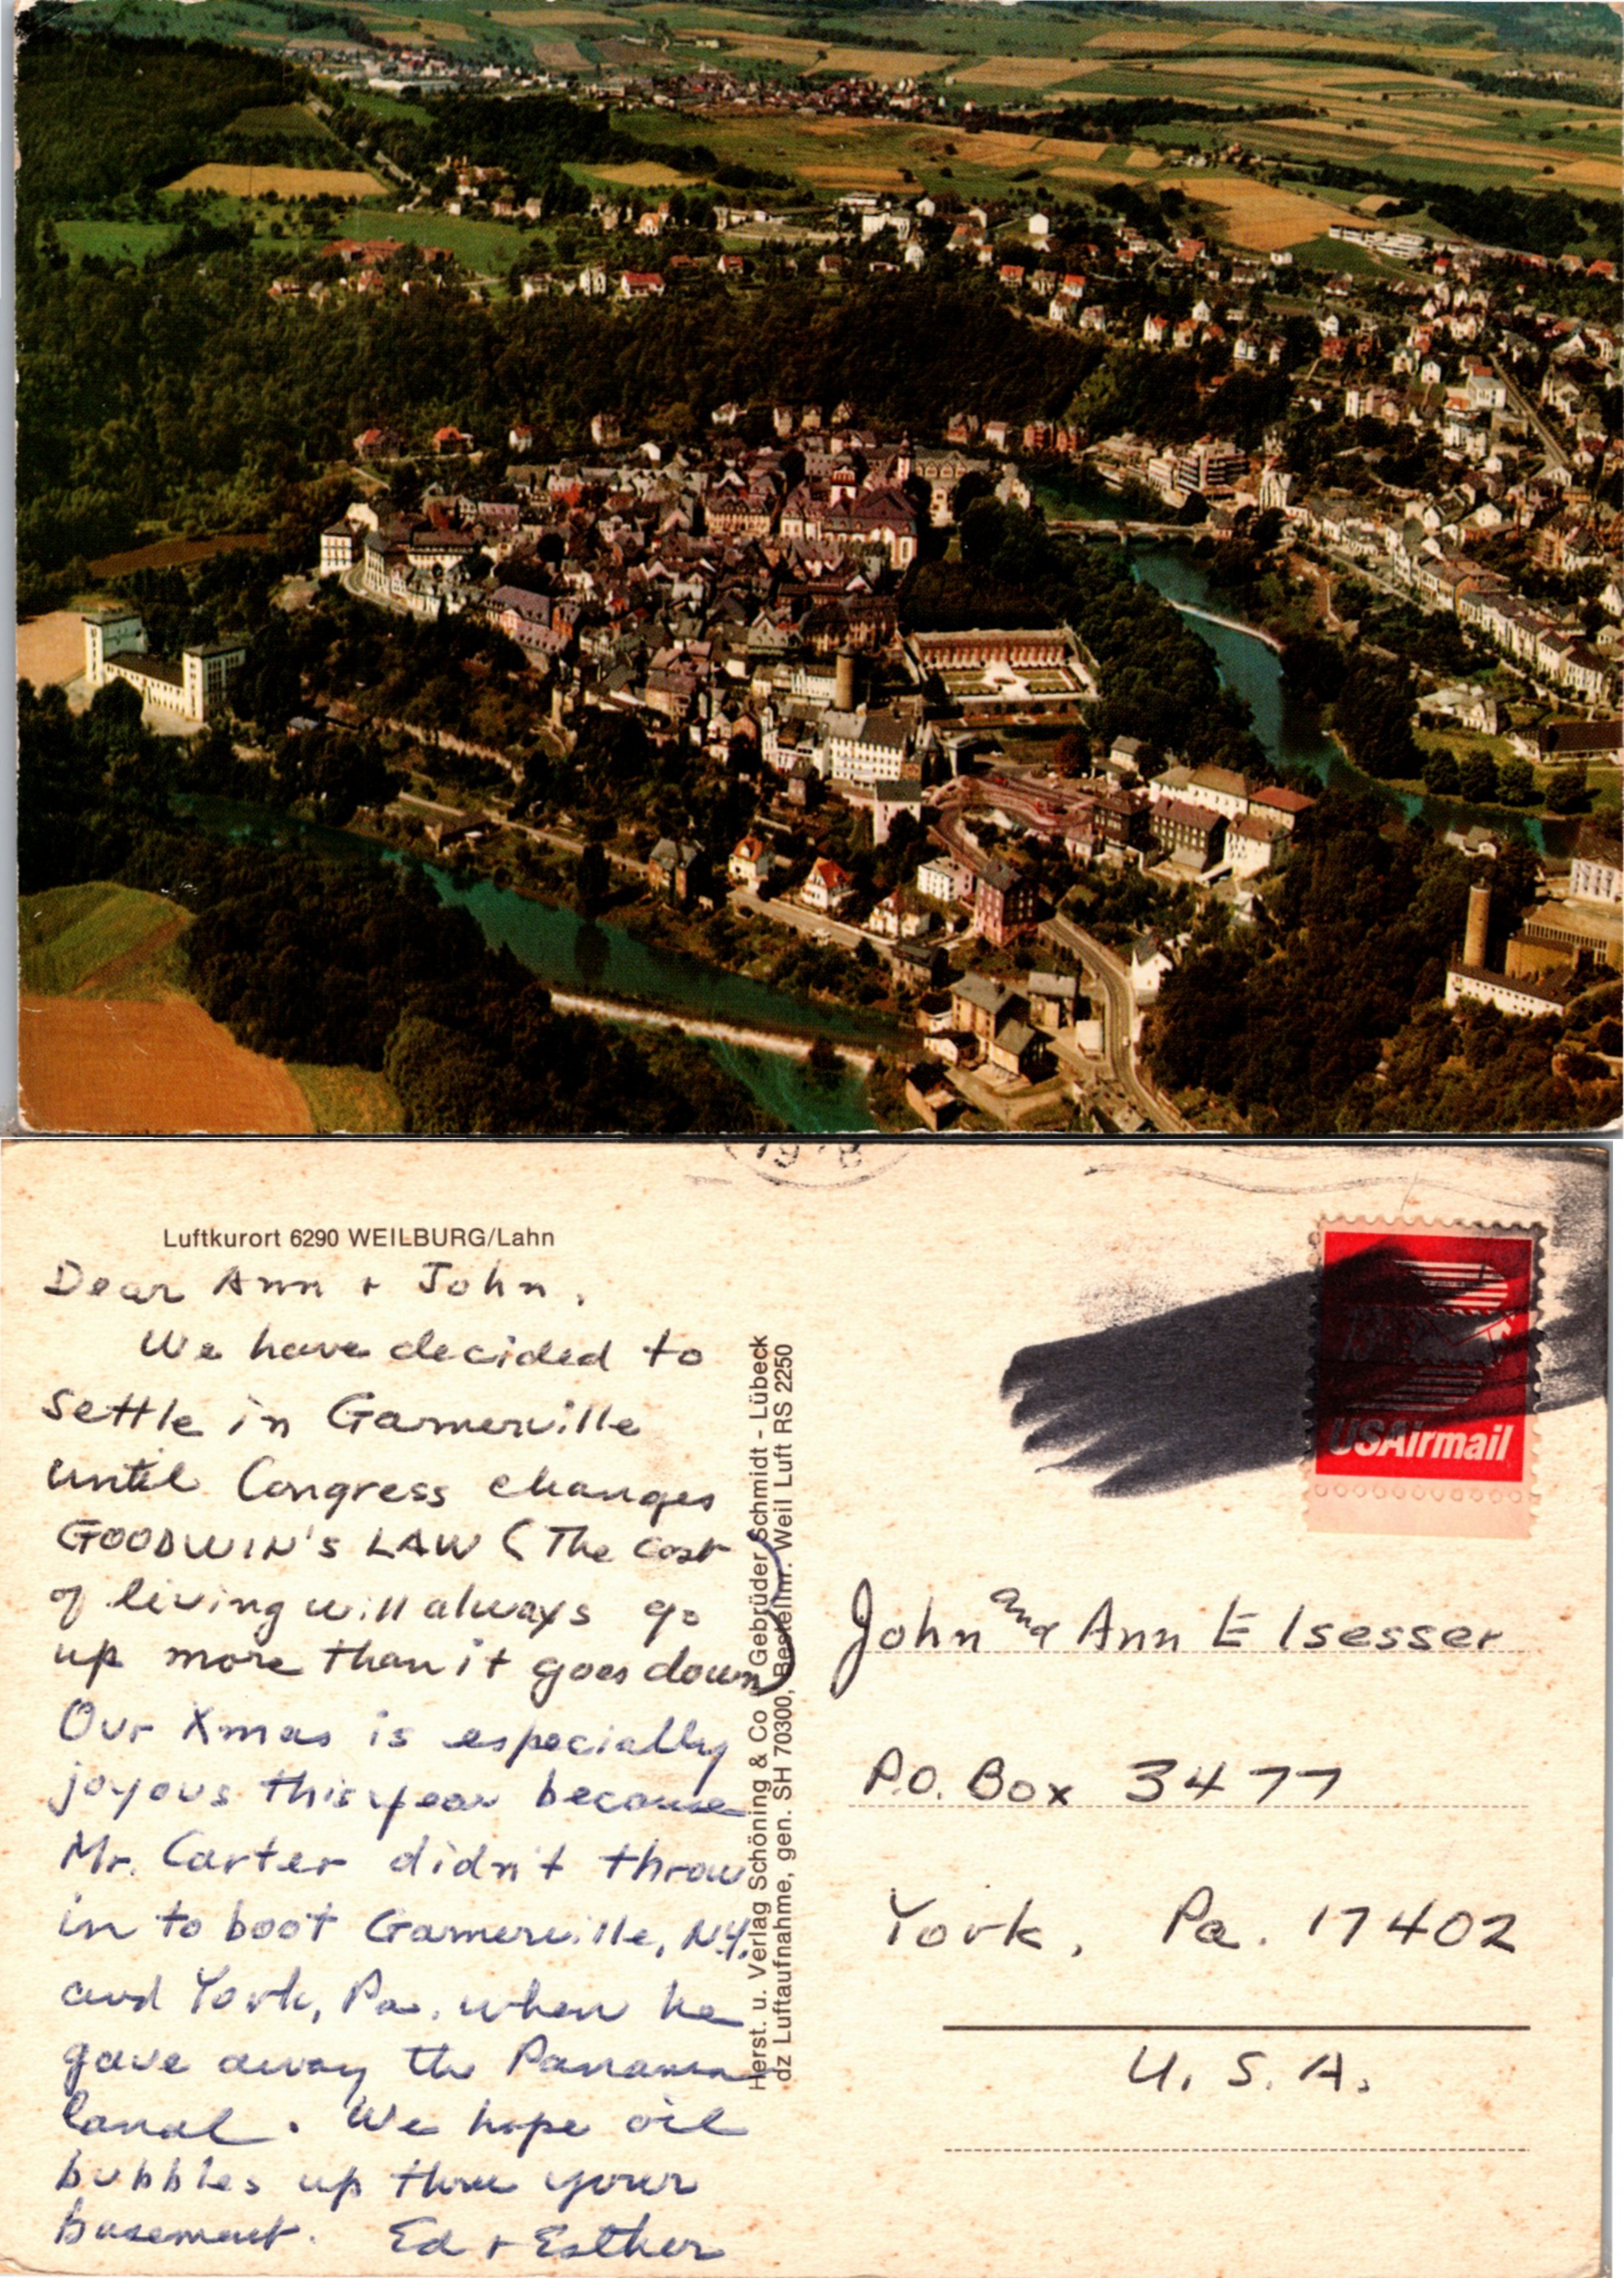 19 8
Luftkurort 6290 WEILBURG/Lahn
Dear Ann + John,
We have decided to
settle in Garnerville
until Congress changes
GOODWIN'S LAW (The cost
of living will always go
up more than it goes down)
Our Xmas is especially
joyous this year because
Mr. Carter didn't throw
in to boot Garnerville, N.Y.
and York, Pa. when he
gave away the Panama
Canal. We hope oil
bubbles up thru your
basement. Ed + Esther
Herst. u. Verlag Schöning & Co Gebrüder Schmidt - Lübeck
dz Luftaufnahme, gen. SH 70300, Bestellnr. Weil Luft RS 2250
USAirmail
John and Ann Elsesser
P.O. Box 3477
York, Pa. 17402
U. S. A.